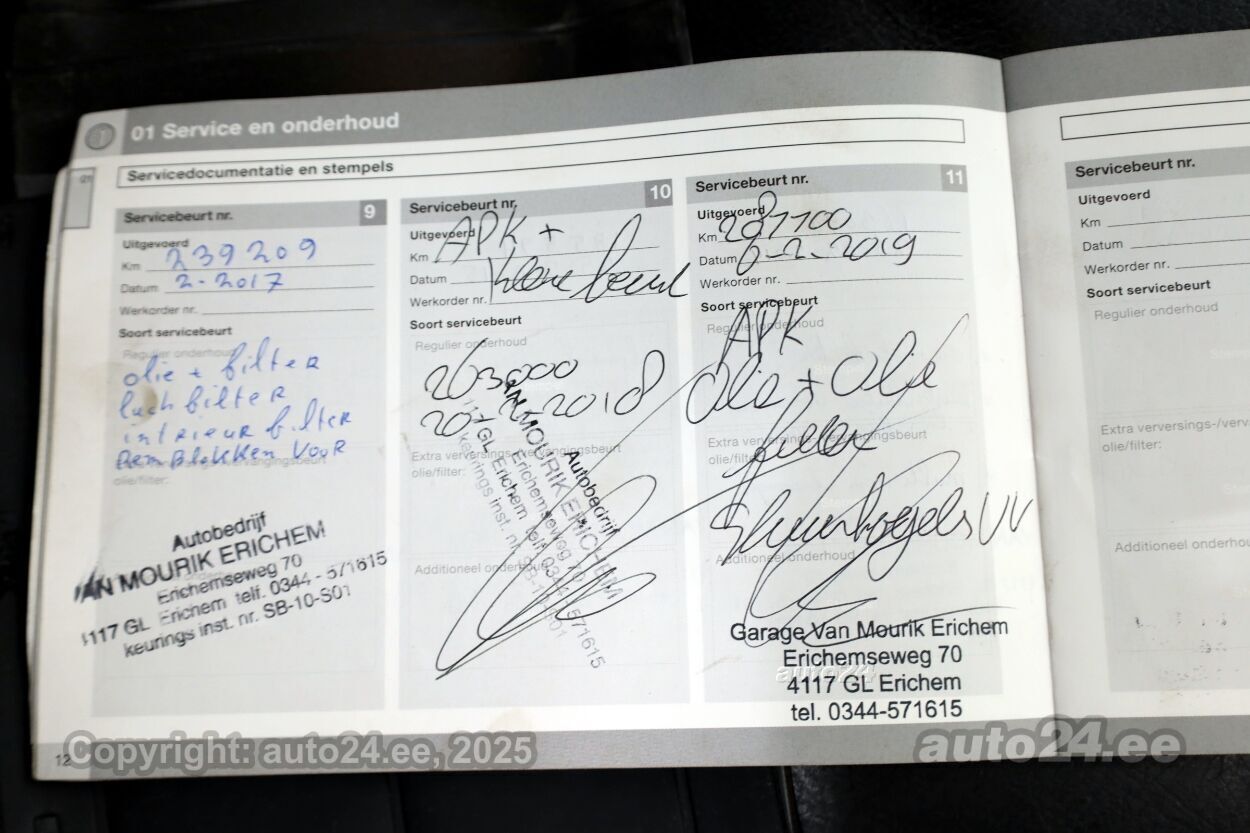 01 Service en onderhoud
01
Servicedocumentatie en stempels
Servicebeurt nr. 9
Uitgevoerd
Km 239209
Datum 2-2017
Werkorder nr.
Soort servicebeurt
Regulier onderhoud
olie + filter
luchfilter
intrieur filter
Remblokken voor
Extra verversings-/vervangingsbeurt
olie/filter:
Autobedrijf
VAN MOURIK ERICHEM
Erichemseweg 70
4117 GL Erichem telf. 0344 - 571615
keurings inst. nr. SB-10-S01
Servicebeurt nr. 10
Uitgevoerd
Km APK +
Datum
Kleine beurt
Werkorder nr.
Soort servicebeurt
Regulier onderhoud
263000
Extra verversings-/vervangingsbeurt
olie/filter:
Autobedrijf
VAN MOURIK ERICHEM
Erichemseweg 70
4117 GL Erichem telf. 0344 - 571615
keurings inst. nr. SB-10-S01
Additioneel onderhoud
Servicebeurt nr. 11
Uitgevoerd
Km 287100
Datum 6-2-2019
Werkorder nr.
Soort servicebeurt
Regulier onderhoud
APK
Olie + Olie
filter
Extra verversings-/vervangingsbeurt
olie/filter:
Stuurkogels VV
Additioneel onderhoud
Garage Van Mourik Erichem
Erichemseweg 70
4117 GL Erichem
tel. 0344-571615
auto24
12
Servicebeurt nr.
Uitgevoerd
Km
Datum
Werkorder nr.
Soort servicebeurt
Regulier onderhoud
Extra verversings-/verv
olie/filter:
Additioneel onderhou
Copyright: auto24.ee, 2025
auto24.ee